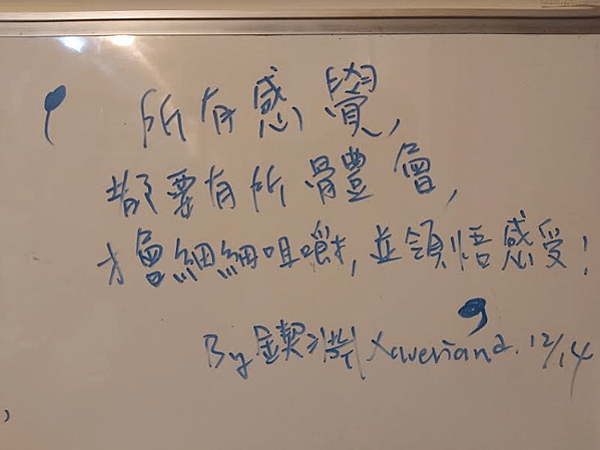 所有感覺,
都要有所體會,
才會細細咀嚼,並領悟感受!
By 鍥 Xaveriana. 12/14